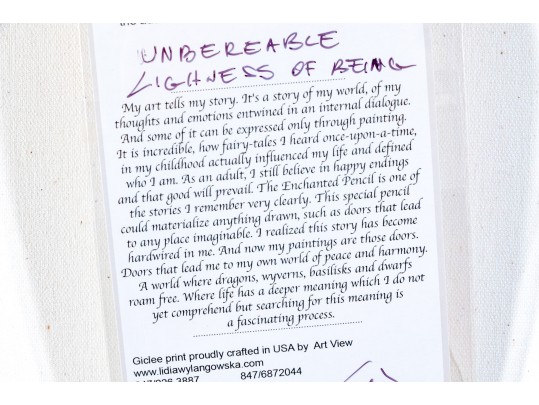 UNBEREABLE
LIGHNESS OF BEING
My art tells my story. It's a story of my world, of my
thoughts and emotions entwined in an internal dialogue.
And some of it can be expressed only through painting.
It is incredible, how fairy-tales I heard once-upon-a-time,
in my childhood actually influenced my life and defined
who I am. As an adult, I still believe in happy endings
and that good will prevail. The Enchanted Pencil is one of
the stories I remember very clearly. This special pencil
could materialize anything drawn, such as doors that lead
to any place imaginable. I realized this story has become
hardwired in me. And now my paintings are those doors.
Doors that lead me to my own world of peace and harmony.
A world where dragons, wyverns, basilisks and dwarfs
roam free. Where life has a deeper meaning which I do not
yet comprehend but searching for this meaning is
a fascinating process.
Giclee print proudly crafted in USA by Art View
www.lidiawylangowska.com
847/6872044